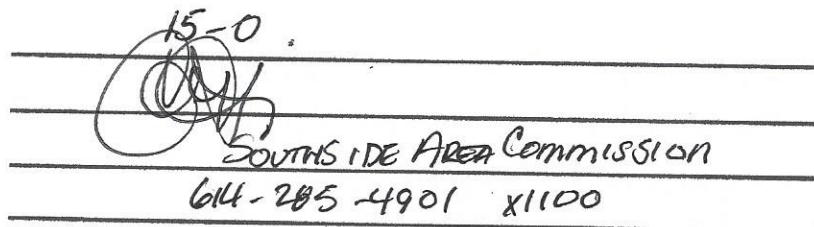 15-0
SOUTHSIDE AREA COMMISSION
614-285-4901 x1100